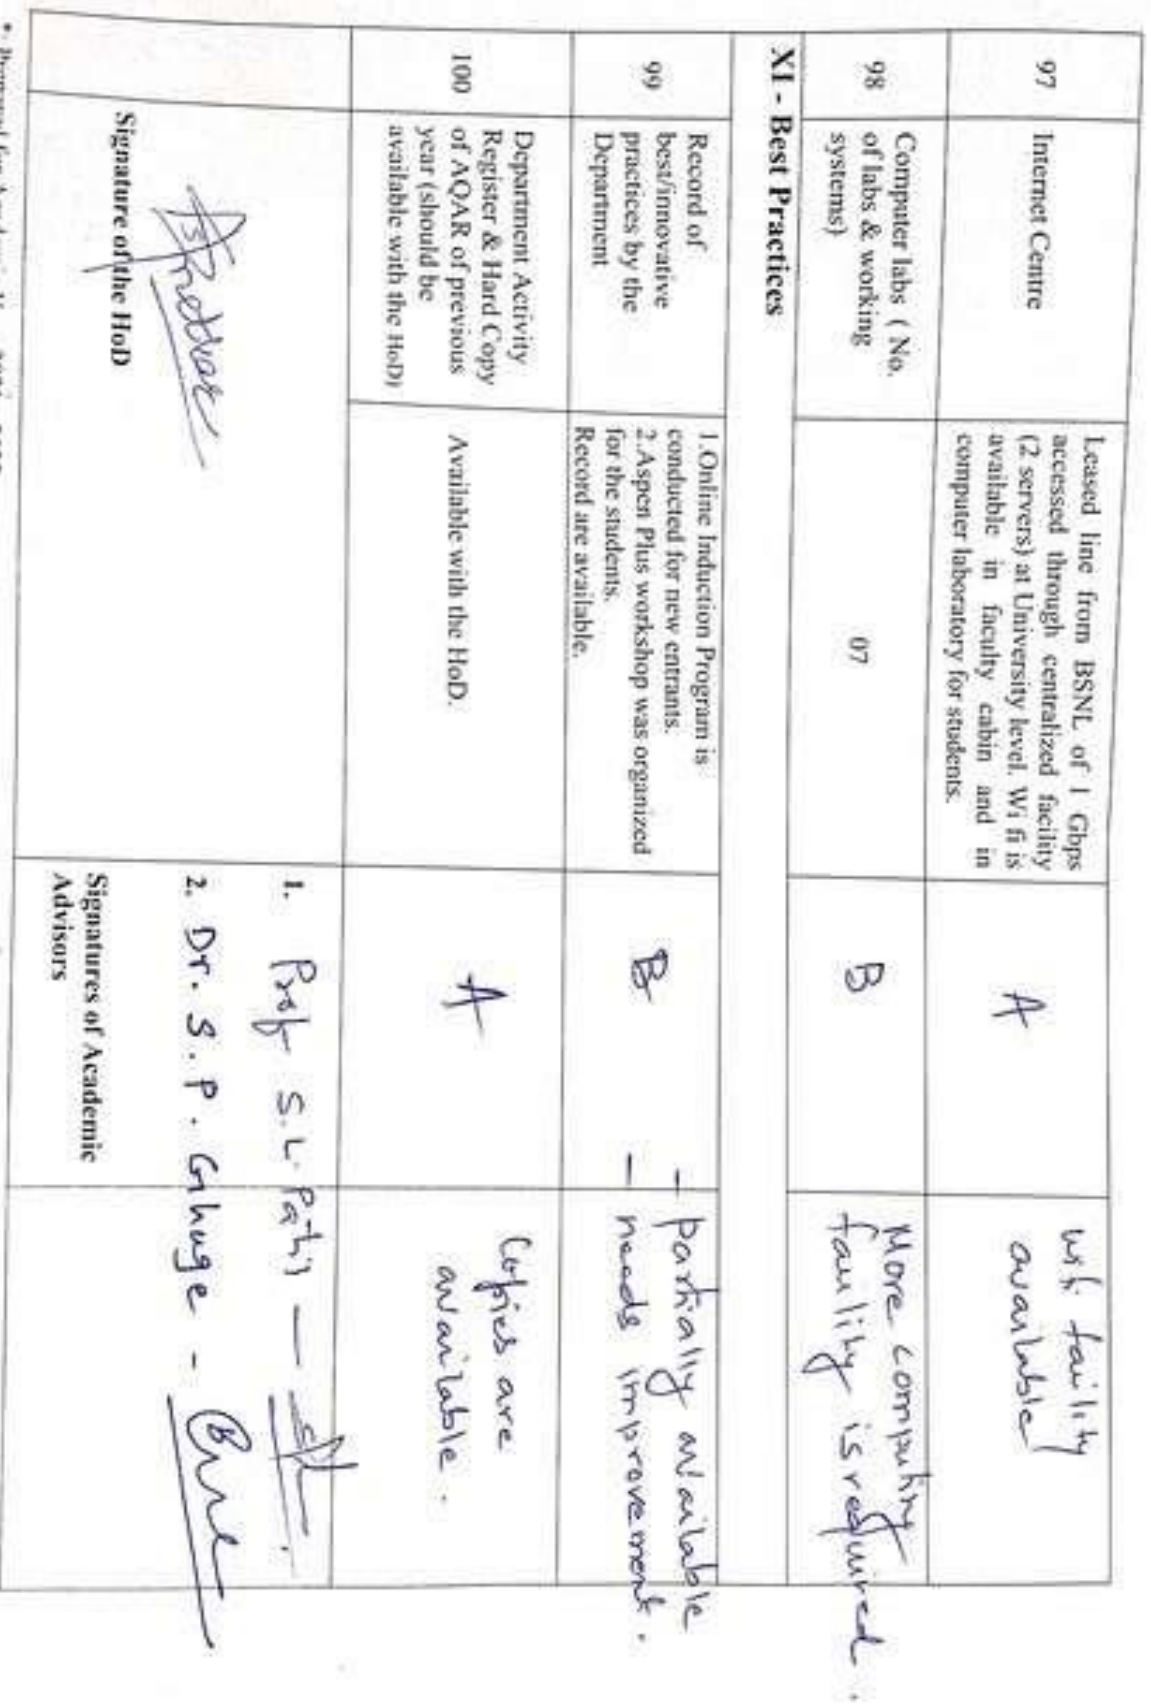 97
Internet Centre
Leased line from BSNL of 1 Gbps
accessed through centralized facility
(2 servers) at University level. Wi fi is
available in faculty cabin and in
computer laboratory for students.
A
wifi facility
available
98
Computer labs ( No.
of labs & working
systems)
07
B
More computing
facility is required.
XI - Best Practices
99
Record of
best/innovative
practices by the
Department
1.Online Induction Program is
conducted for new entrants.
2.Aspen Plus workshop was organized
for the students.
Record are available.
B
- partially available
- needs improvement.
100
Department Activity
Register & Hard Copy
of AQAR of previous
year (should be
available with the HoD)
Available with the HoD.
A
Copies are
available.
Signature of the HoD
1. Prof S.L. Patil -
2. Dr. S.P. Ghuge -
Signatures of Academic
Advisors